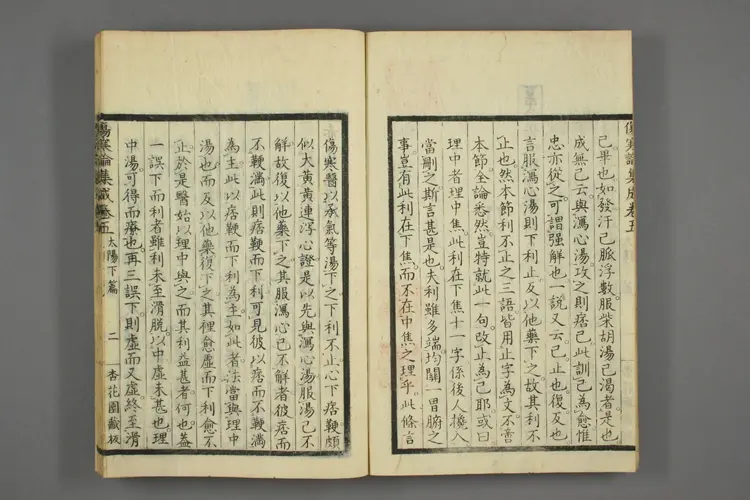 傷寒論集成卷五
己畢也如發汗己脈浮數服柴胡湯己渴者是也
成無己云與瀉心湯攻之則痞己此訓己為愈惟
忠亦從之可謂強解也一說又云己止也復反也
言服瀉心湯則下利止反以他藥下之故其利不
止也然本節利不止之三語皆用止字為文不啻
本節全論悉然豈特就此一句改止為己耶或曰
理中者理中焦此利在下焦十一字係後人攙入
當刪之斯言甚是也夫利雖多端均關一胃腑之
事豈有此利在下焦而不在中焦之理乎此條言
傷寒醫以承氣等湯下之下利不止心下痞鞕頗
似大黃黃連瀉心證是以先與瀉心湯服湯己不
解故復以他藥下之其服瀉心己不解者彼痞而
不鞕滿此則痞鞕而下利可見彼以痞而不鞕滿
為主此以痞鞕而下利為主如此者法當與理中
湯也而反以他藥復下之其裡愈虛而下利愈不
止於是醫始以理中與之而其利益甚者何也蓋
一誤下而利者雖利未至滑脫以中虛未甚也理
中湯可得而療也再三誤下則虛而又虛終至滑
傷寒論集成卷五 太陽下篇 二 杏花園藏板